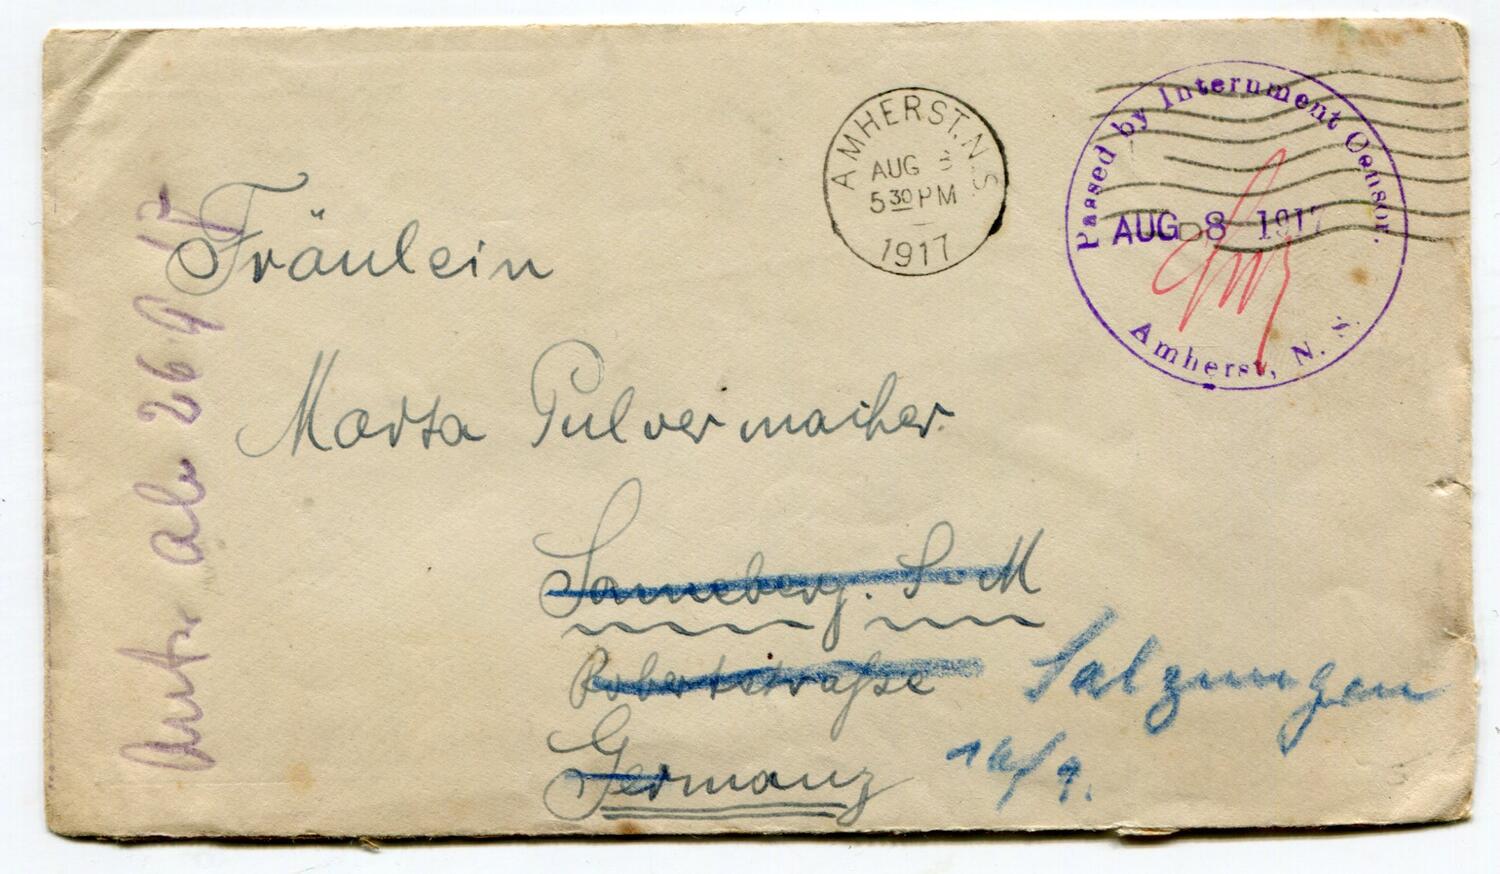 AMHERST. N.S.
AUG
5 30 PM
1917
Passed by Internment Censor.
AUG 8 1917
Amherst, N. S.
Fräulein
Marta Pulvermacher
Sonneberg. S.-M
Robertstraße
Germany
Salzungen
26 9 17